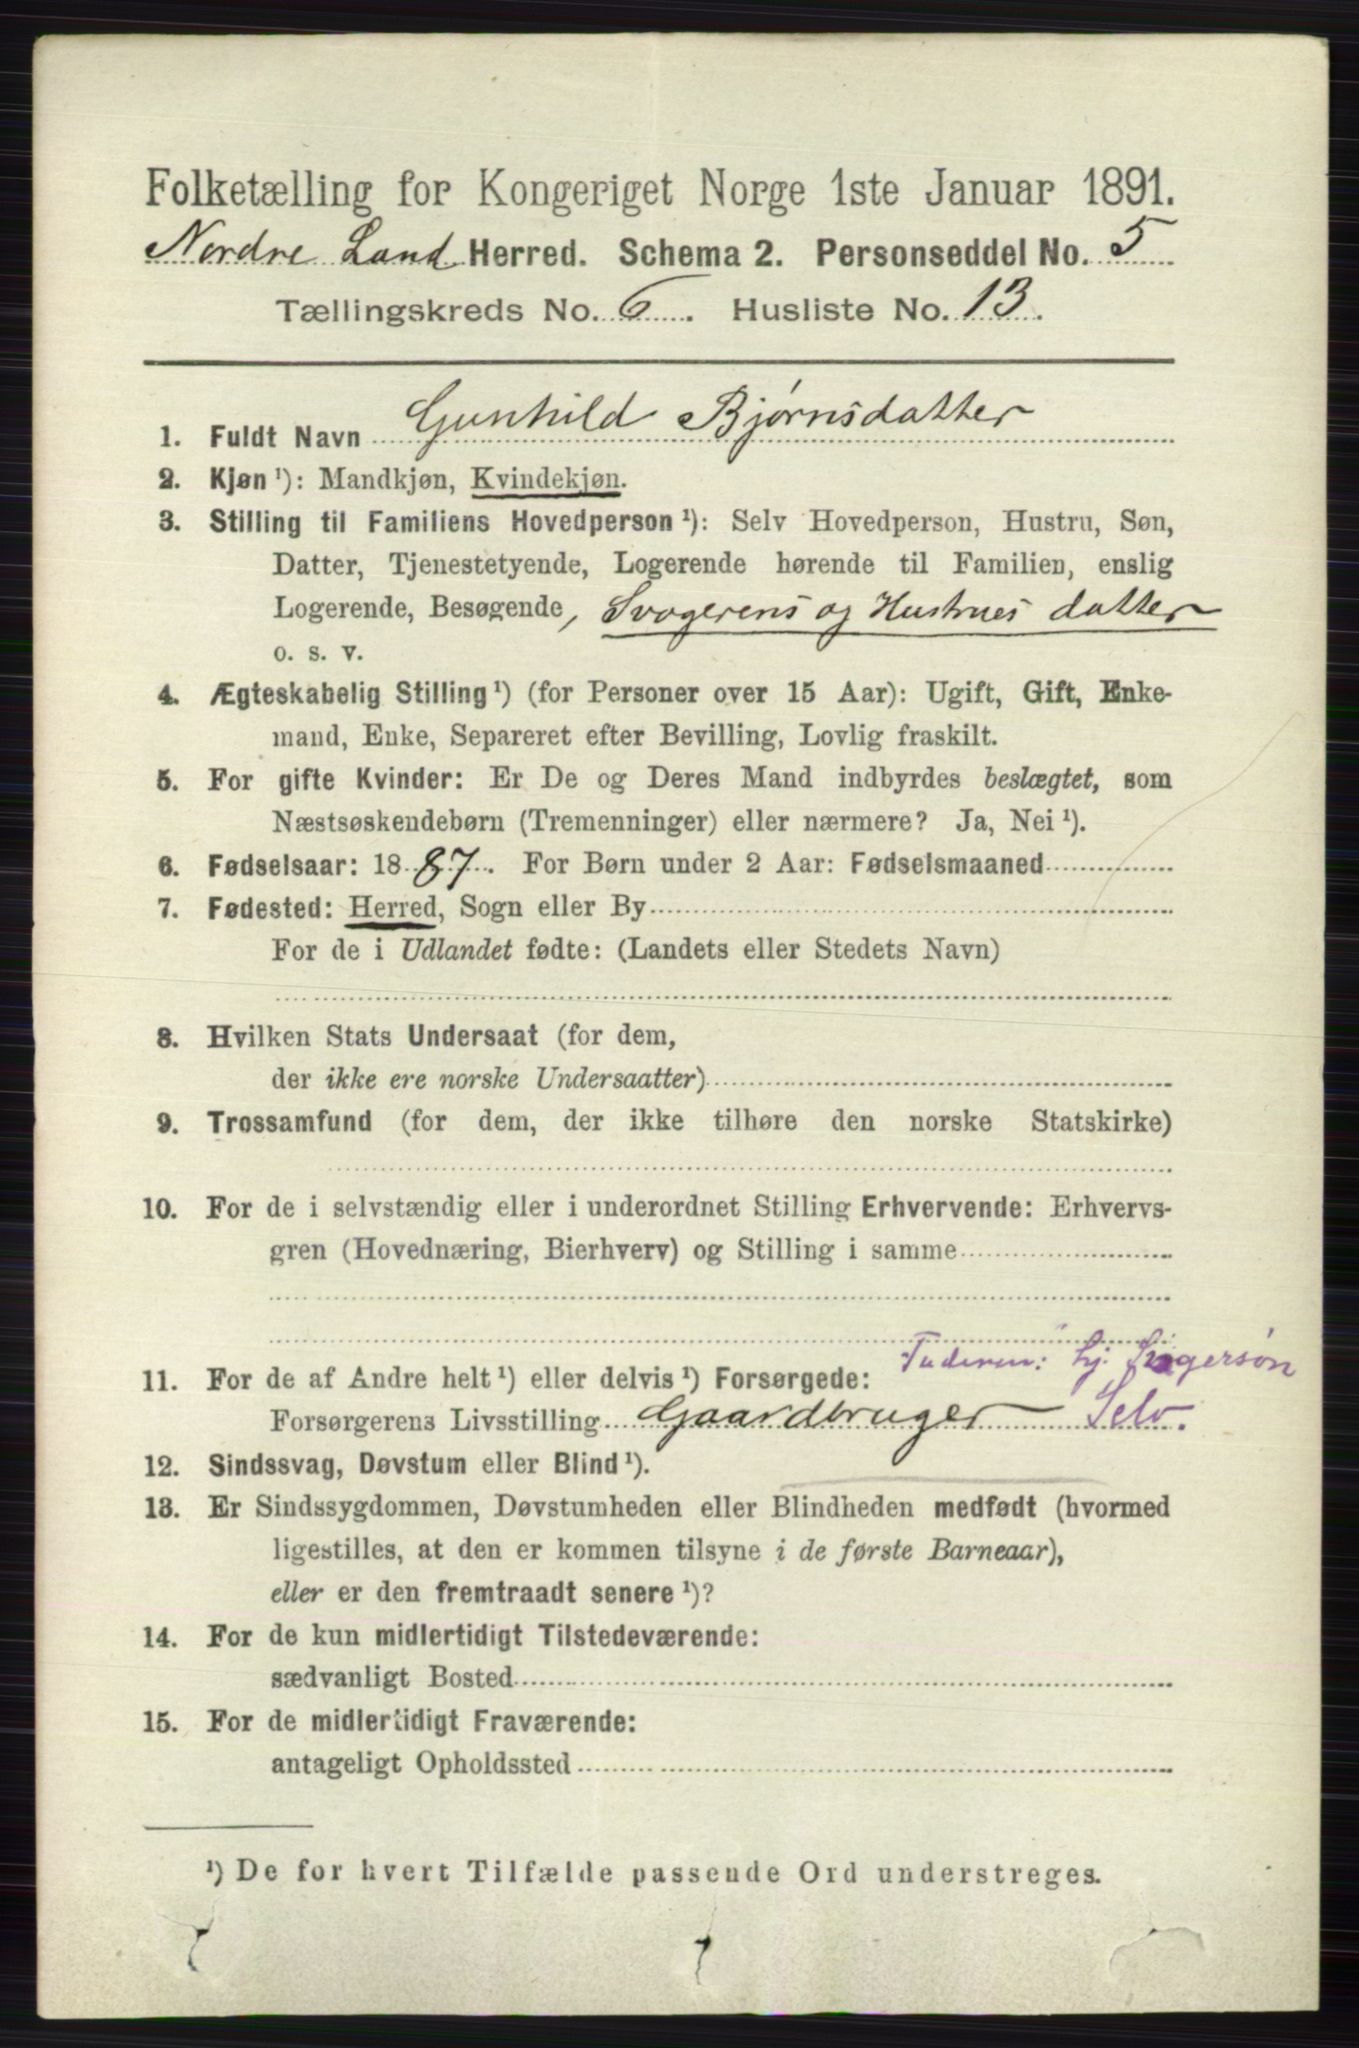 Folketælling for Kongeriget Norge 1ste Januar 1891.
Nordre Land Herred. Schema 2. Personseddel No. 5
Tællingskreds No. 6. Husliste No. 13.
1. Fuldt Navn Gunhild Bjørnsdatter
2. Kjøn ¹): Mandkjøn, Kvindekjøn.
3. Stilling til Familiens Hovedperson ¹): Selv Hovedperson, Hustru, Søn,
Datter, Tjenestetyende, Logerende hørende til Familien, enslig
Logerende, Besøgende, Svogerens og Hustrues datter
o. s. v.
4. Ægteskabelig Stilling ¹) (for Personer over 15 Aar): Ugift, Gift, Enke-
mand, Enke, Separeret efter Bevilling, Lovlig fraskilt.
5. For gifte Kvinder: Er De og Deres Mand indbyrdes beslægtet, som
Næstsøskendebørn (Tremenninger) eller nærmere? Ja, Nei ¹).
6. Fødselsaar: 1887. For Børn under 2 Aar: Fødselsmaaned
7. Fødested: Herred, Sogn eller By
For de i Udlandet fødte: (Landets eller Stedets Navn)
8. Hvilken Stats Undersaat (for dem,
der ikke ere norske Undersaatter)
9. Trossamfund (for dem, der ikke tilhøre den norske Statskirke)
10. For de i selvstændig eller i underordnet Stilling Erhvervende: Erhvervs-
gren (Hovednæring, Bierhverv) og Stilling i samme
11. For de af Andre helt ¹) eller delvis ¹) Forsørgede:
Forsørgerens Livsstilling Gaardbruger Selv.
12. Sindssvag, Døvstum eller Blind ¹).
13. Er Sindssygdommen, Døvstumheden eller Blindheden medfødt (hvormed
ligestilles, at den er kommen tilsyne i de første Barneaar),
eller er den fremtraadt senere ¹)?
14. For de kun midlertidigt Tilstedeværende:
sædvanligt Bosted
15. For de midlertidigt Fraværende:
antageligt Opholdssted
¹) De for hvert Tilfælde passende Ord understreges.